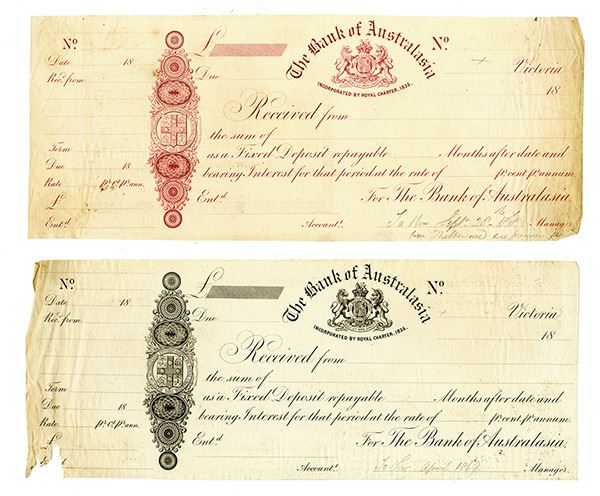 Nº
Date 18
Rec.ᵈ from
Term
Due 18
Rate pʳ. Cᵗ. pʳ. ann.
£
£
Due
The Bank of Australasia
INCORPORATED BY ROYAL CHARTER, 1835.
Nº
Victoria
18
Received from
the sum of
as a Fixed Deposit repayable Months after date and
bearing Interest for that period at the rate of pʳ. cent. pʳ. annum.
For The Bank of Australasia.
Entᵈ.
Accountᵗ. Manager.
Sept 28ᵗʰ
Nº
Date 18
Rec.ᵈ from
Term
Due 18
Rate pʳ. Cᵗ. pʳ. ann.
£
£
Due
The Bank of Australasia
INCORPORATED BY ROYAL CHARTER, 1835.
Nº
Victoria
18
Received from
the sum of
as a Fixed Deposit repayable Months after date and
bearing Interest for that period at the rate of pʳ. cent. pʳ. annum.
For The Bank of Australasia.
Entᵈ.
Accountᵗ. April Manager.